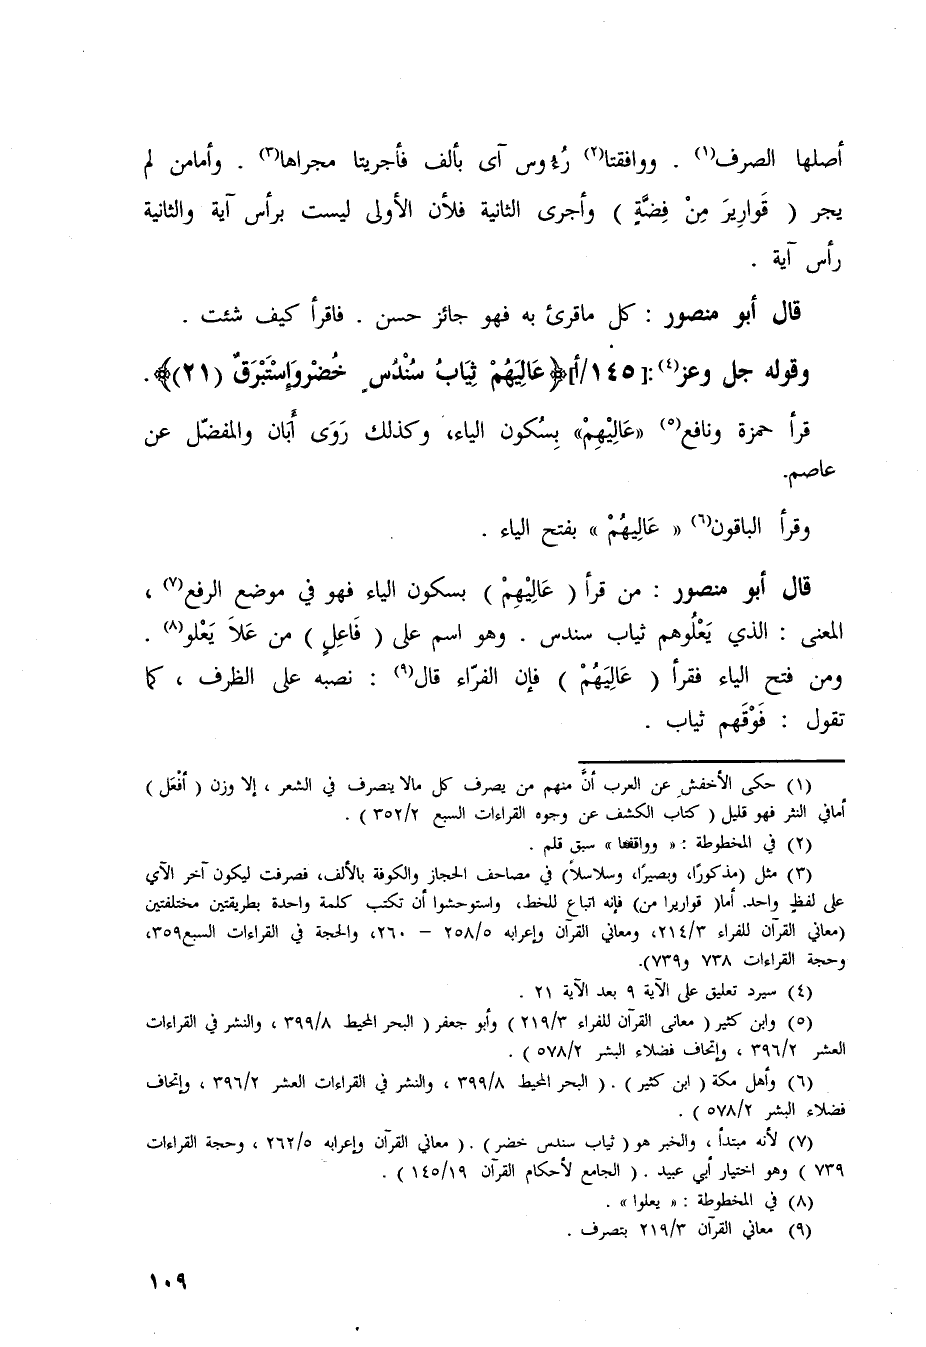 أصلها الصرف(١) . ووافقتا(٢) رُءُوس آى بألف فأجريتا مجراها(٣) . وأمامن لم
يجر ( قَوارِيرَ مِنْ فِضَّةٍ ) وأجرى الثانية فلأن الأولى ليست برأس آية والثانية
رأس آية .
قال أبو منصور : كل ماقرئ به فهو جائز حسن . فاقرأ كيف شئت .
وقوله جل وعز(٤):[١٤٥/أ]﴿عَالِيَهُمْ ثِيَابُ سُنْدُسٍ خُضْرٌوَإِسْتَبْرَقٌ (٢١)﴾.
قرأ حمزة ونافع(٥) «عَالِيْهِمْ» بِسُكون الياء، وكذلك رَوَى أَبَان والمفضّل عن
عاصم.
وقرأ الباقون(٦) « عَالِيَهُمْ » بفتح الياء .
قال أبو منصور : من قرأ ( عَالِيْهِمْ ) بسكون الياء فهو في موضع الرفع(٧) ،
المعنى : الذي يَعْلُوهم ثياب سندس . وهو اسم على ( فَاعِلٍ ) من عَلاَ يَعْلو(٨) .
ومن فتح الياء فقرأ ( عَالِيَهُمْ ) فإن الفرّاء قال(٩) : نصبه على الظرف ، كما
تقول : فَوْقَهم ثياب .
(١) حكى الأخفش عن العرب أنَّ منهم من يصرف كل مالا ينصرف في الشعر ، إلا وزن ( أفْعَل )
أمافي النثر فهو قليل ( كتاب الكشف عن وجوه القراءات السبع ٣٥٢/٢ ) .
(٢) في المخطوطة : « وواقفتا » سبق قلم .
(٣) مثل (مذكورًا، وبصيرًا، وسلاسلاً) في مصاحف الحجاز والكوفة بالألف، فصرفت ليكون آخر الآي
على لفظٍ واحد. أما( قواريرا من) فإنه اتباع للخط، واستوحشوا أن تكتب كلمة واحدة بطريقتين مختلفتين
(معاني القرآن للفراء ٢١٤/٣، ومعاني القرآن وإعرابه ٢٥٨/٥ – ٢٦٠، والحجة في القراءات السبع٣٥٩،
وحجة القراءات ٧٣٨ و٧٣٩).
(٤) سيرد تعليق على الآية ٩ بعد الآية ٢١ .
(٥) وابن كثير ( معانى القرآن للفراء ٢١٩/٣ ) وأبو جعفر ( البحر المحيط ٣٩٩/٨ ، والنشر في القراءات
العشر ٣٩٦/٢ ، وإتحاف فضلاء البشر ٥٧٨/٢ ) .
(٦) وأهل مكة ( ابن كثير ) . ( البحر المحيط ٣٩٩/٨ ، والنشر في القراءات العشر ٣٩٦/٢ ، وإتحاف
فضلاء البشر ٥٧٨/٢ ) .
(٧) لأنه مبتدأ ، والخبر هو ( ثياب سندس خضر ) . ( معاني القرآن وإعرابه ٢٦٢/٥ ، وحجة القراءات
٧٣٩ ) وهو اختيار أبي عبيد . ( الجامع لأحكام القرآن ١٤٥/١٩ ) .
(٨) في المخطوطة : « يعلوا » .
(٩) معاني القرآن ٢١٩/٣ بتصرف .
١٠٩